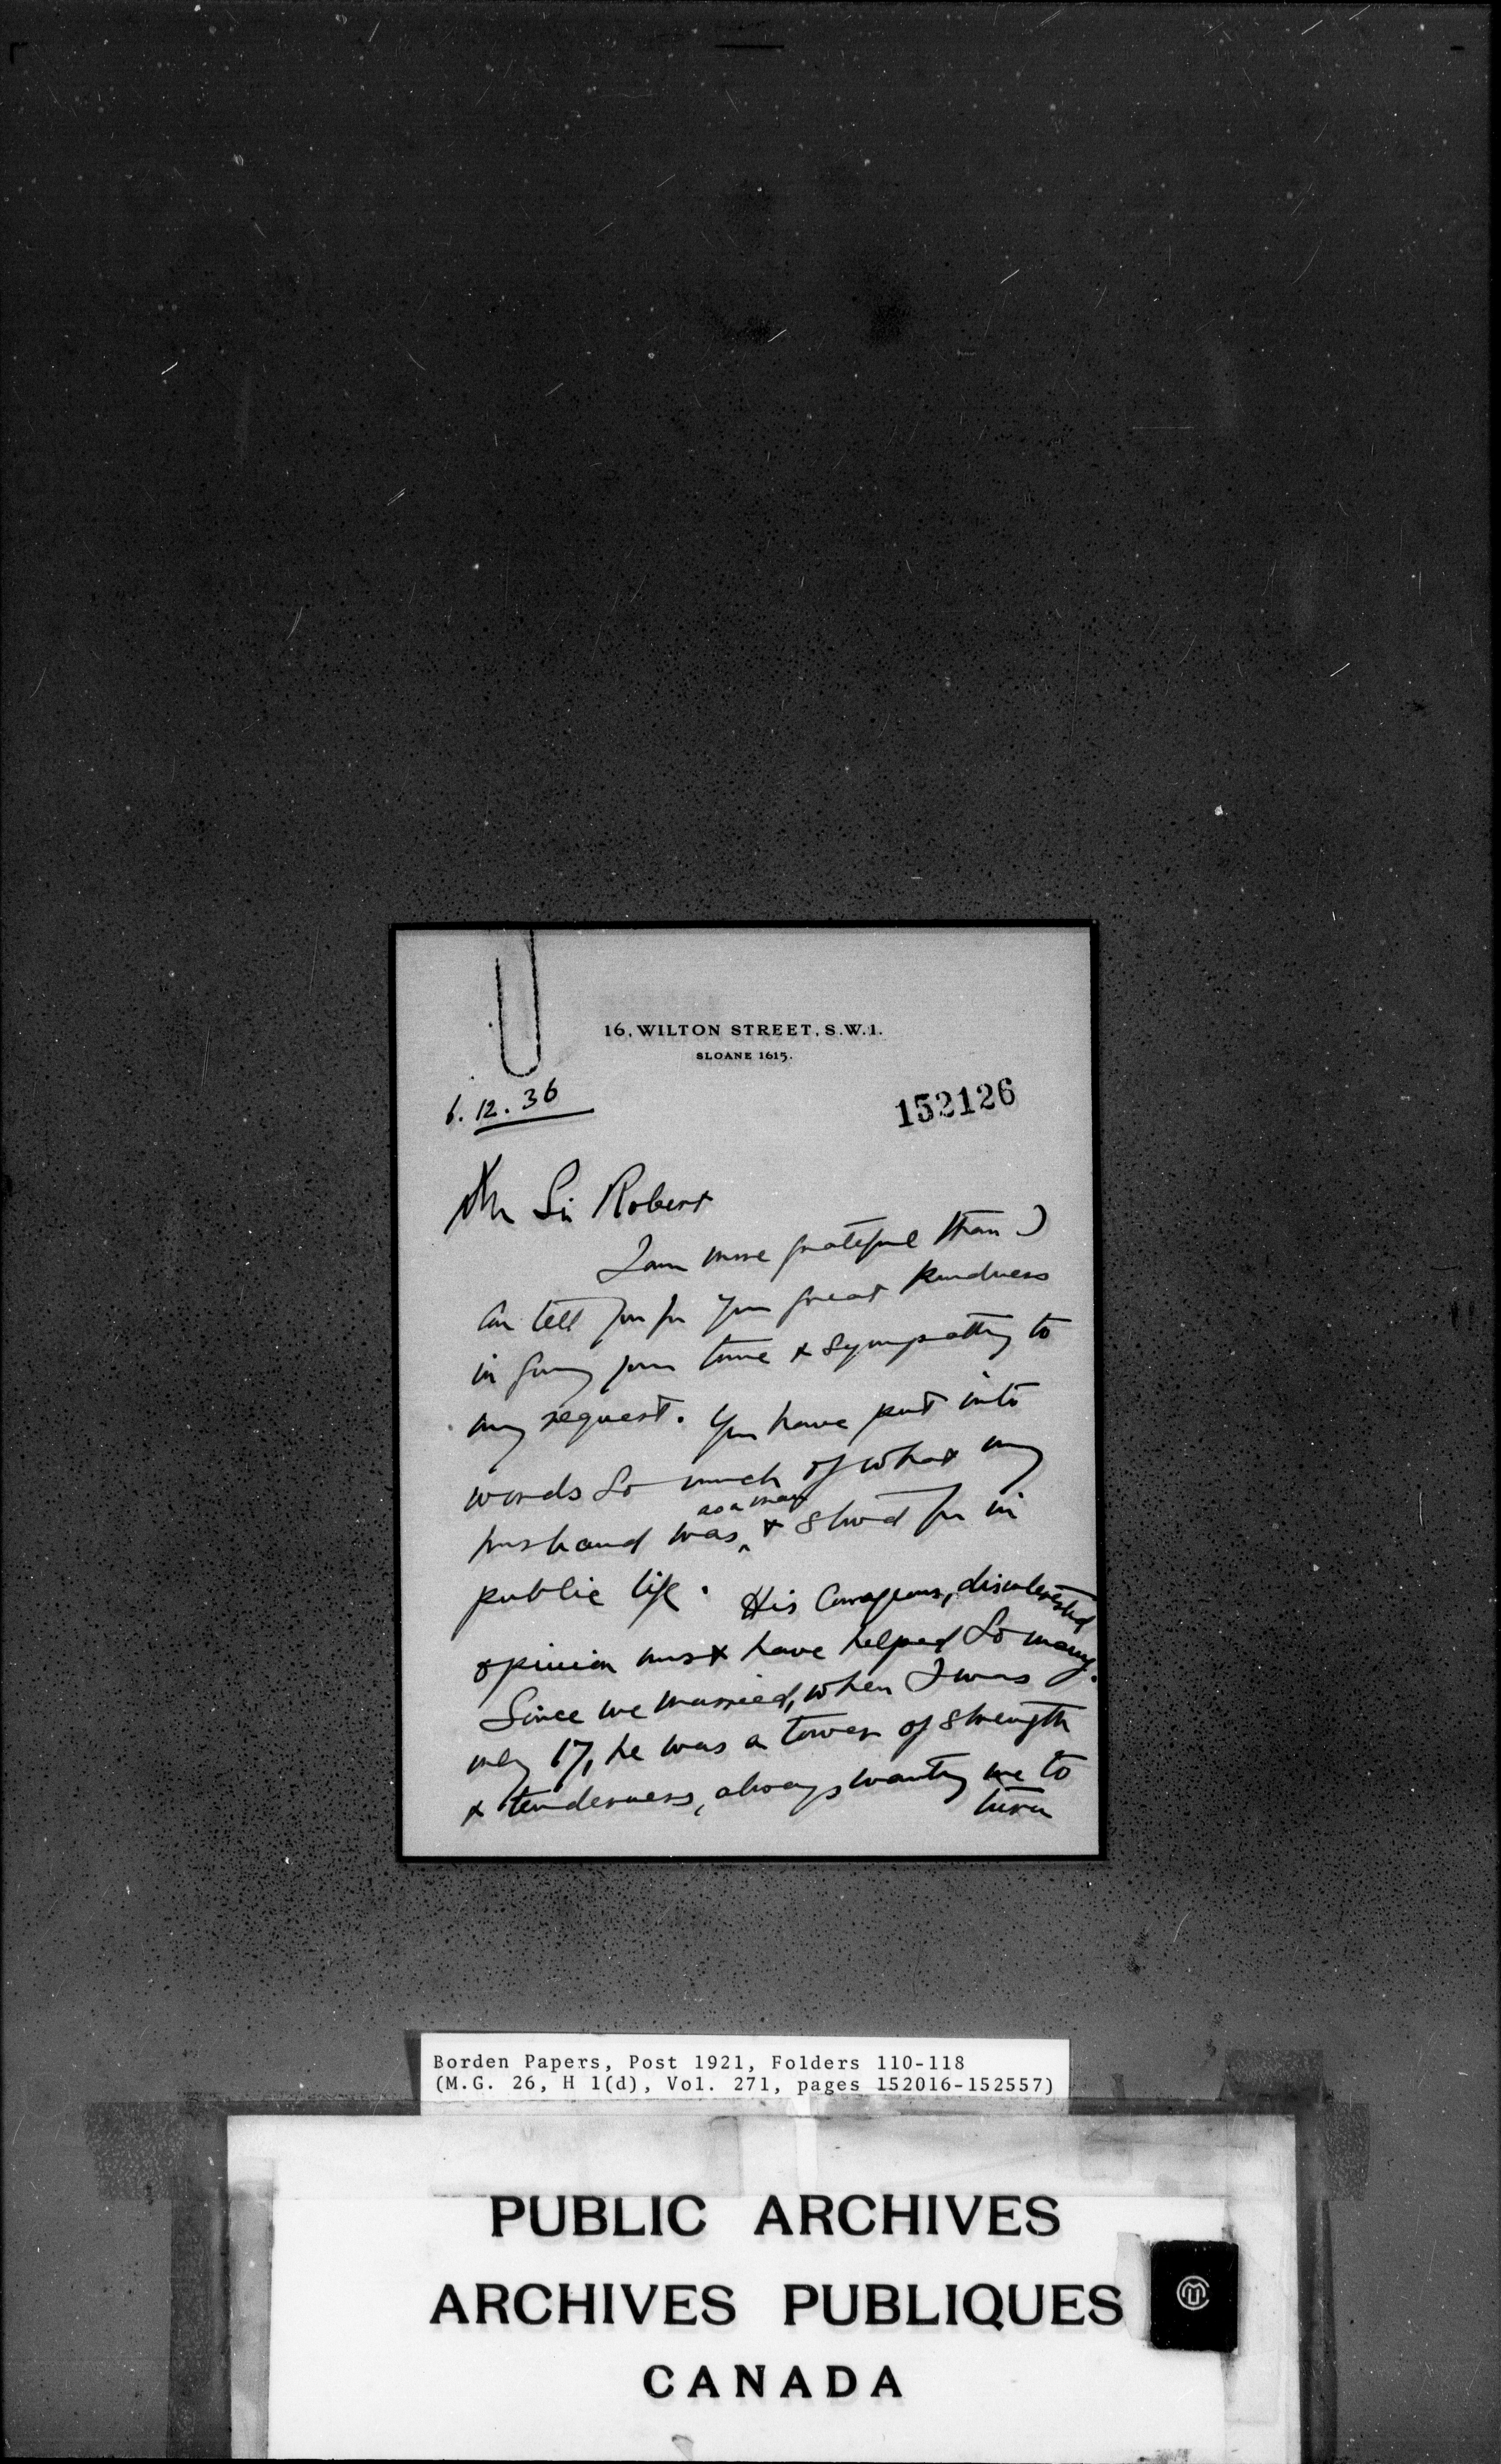 16, WILTON STREET, S.W.1.
SLOANE 1615.
6. 12. 36
152126
Sir Robert
I am more grateful than I
can tell you for your great kindness
in giving your time & sympathy to
my request. You have put into
words so much of what my
as a man
husband was ^ & stood for in
public life. His courageous, disinterested
opinion must have helped so many.
Since we married, when I was
only 17, he was a tower of strength
& tenderness, always wanting me to
turn
Borden Papers, Post 1921, Folders 110-118
(M.G. 26, H 1(d), Vol. 271, pages 152016-152557)
PUBLIC ARCHIVES
ARCHIVES PUBLIQUES
CANADA